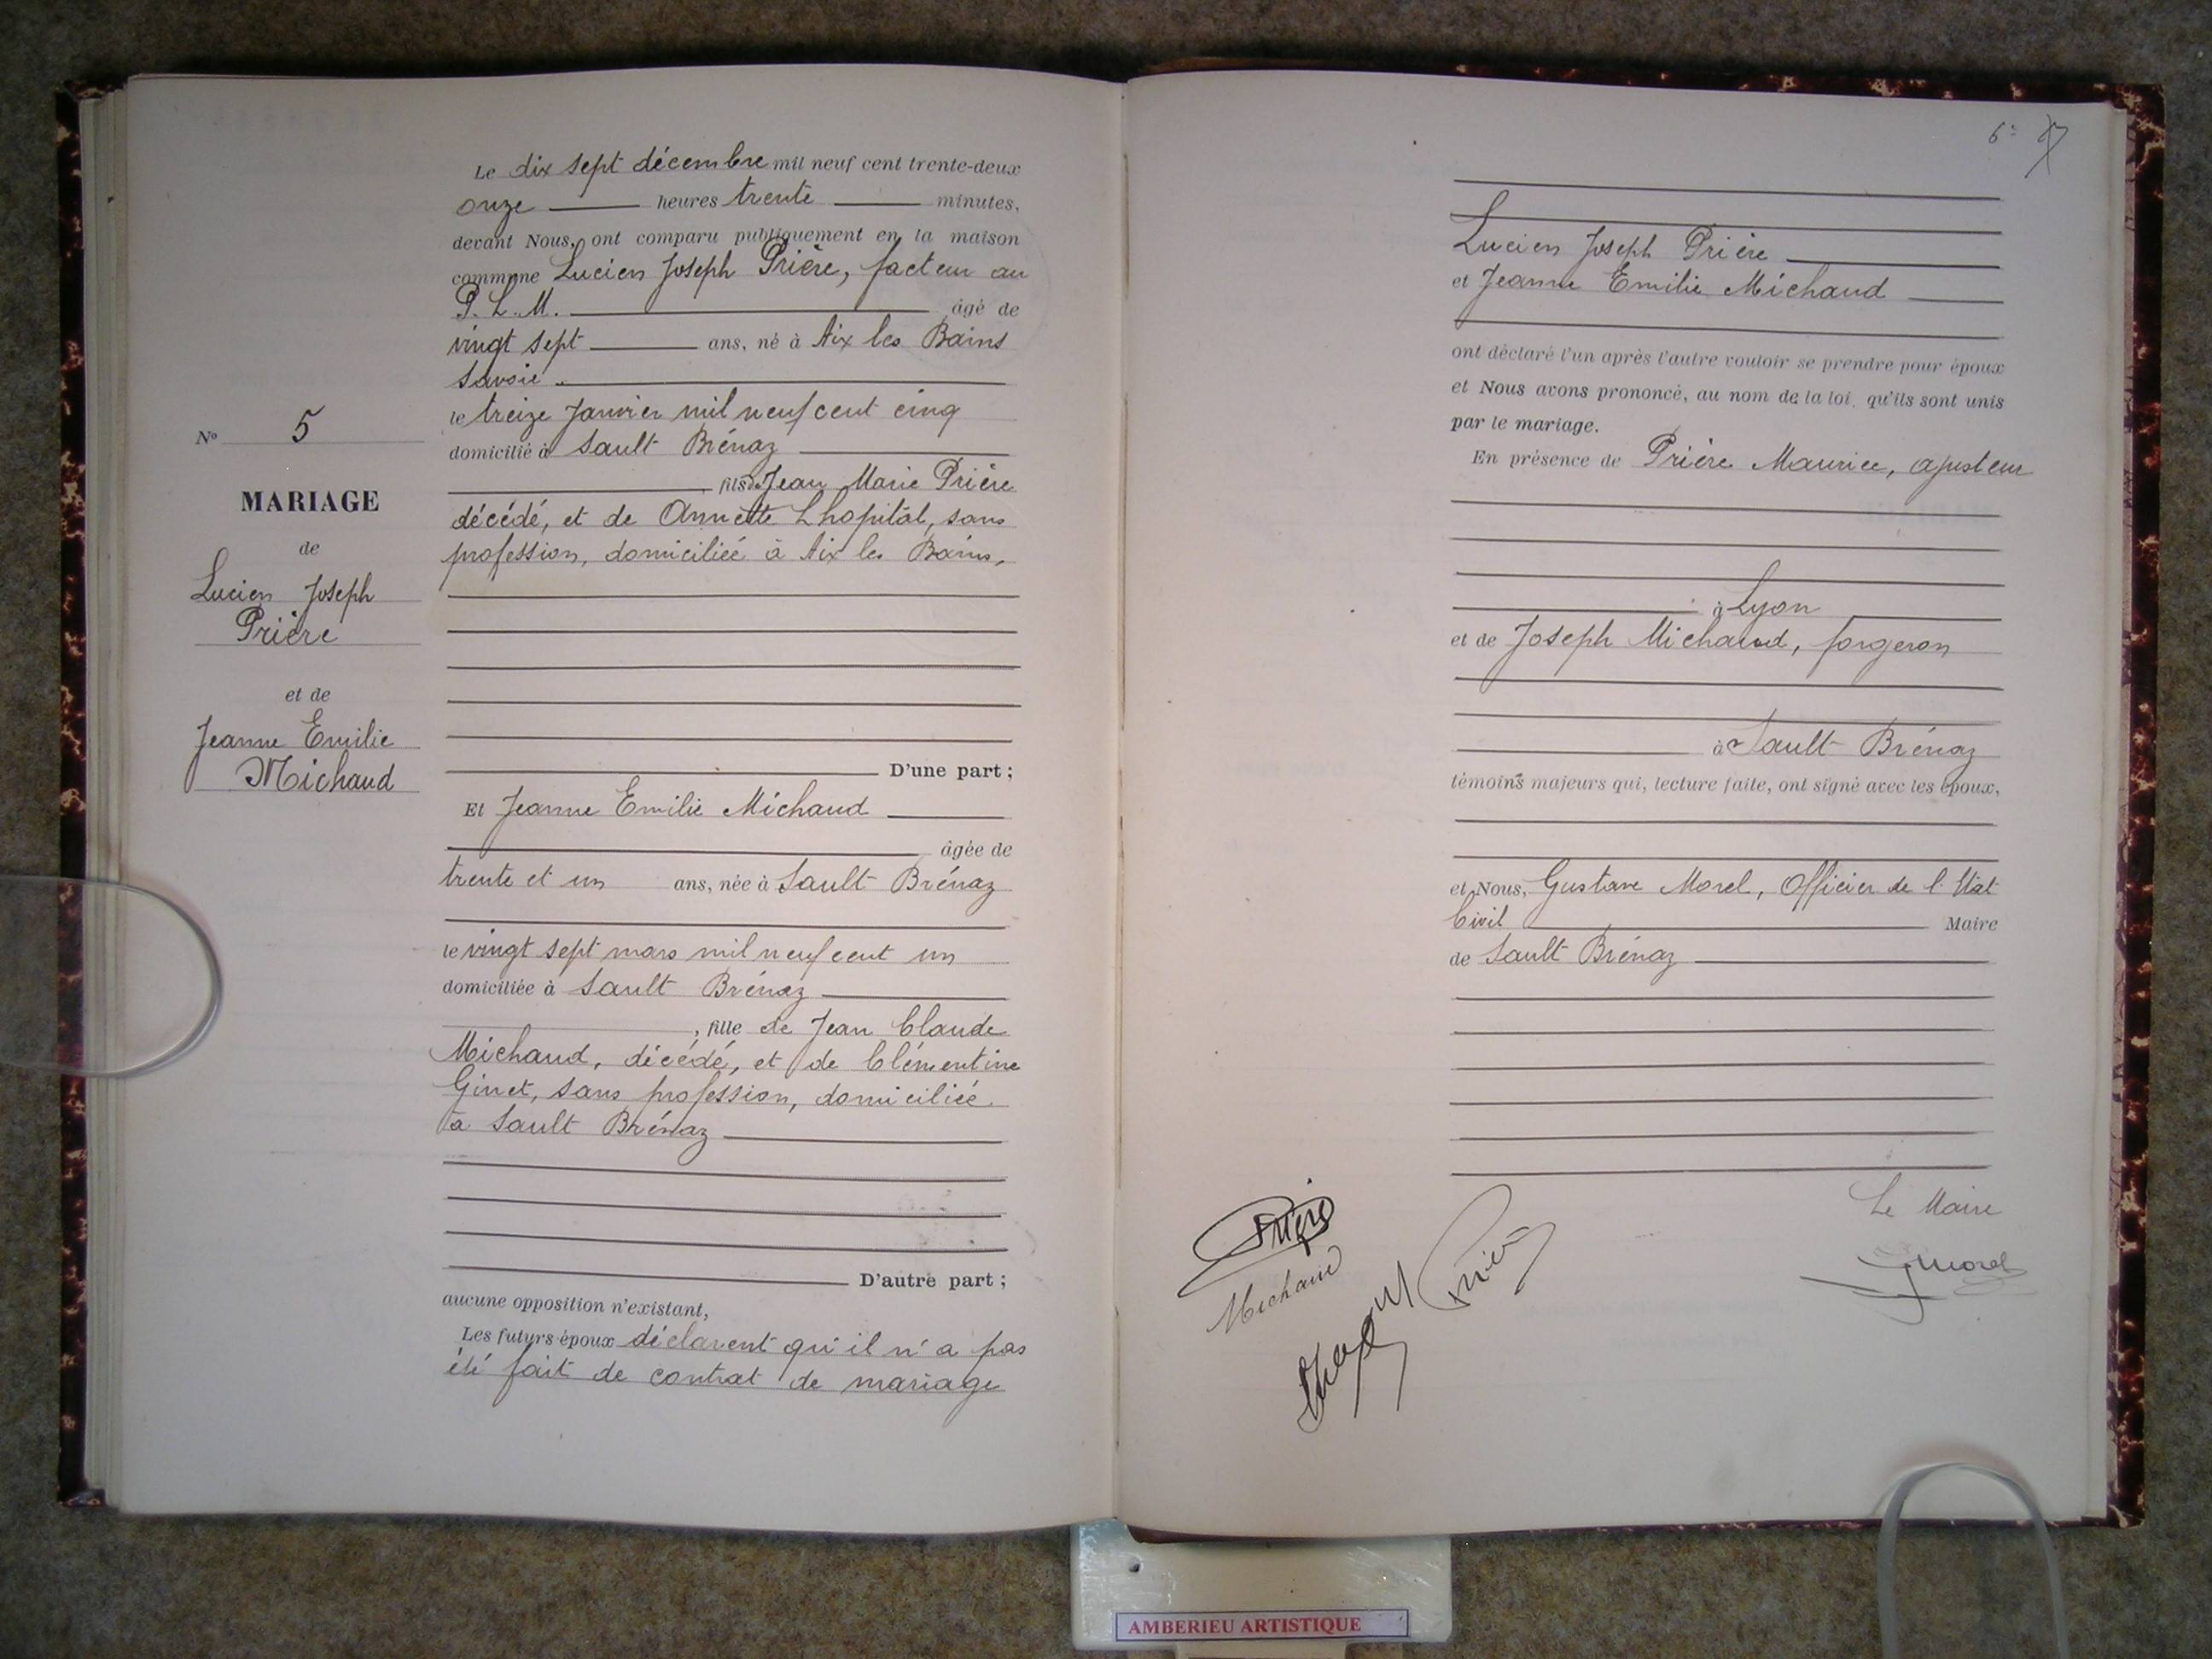 N° 5
MARIAGE
de
Lucien Joseph
Prière
et de
Jeanne Emilie
Michaud
Le dix sept décembre mil neuf cent trente-deux
onze heures trente minutes,
devant Nous, ont comparu publiquement en la maison
commune Lucien Joseph Prière, facteur au
P. L. M. âgé de
vingt sept ans, né à Aix les Bains
Savoie
le treize Janvier mil neuf cent cinq
domicilié à Sault Brénaz
fils de Jean Marie Prière
décédé, et de Annette Lhopital, sans
profession, domiciliée à Aix les Bains,
D'une part ;
Et Jeanne Emilie Michaud
âgée de
trente et un ans, née à Sault Brénaz
le vingt sept mars mil neuf cent un
domiciliée à Sault Brénaz
, fille de Jean Claude
Michaud, décédé, et de Clémentine
Ginet, sans profession, domiciliée
à Sault Brénaz
D'autre part ;
aucune opposition n'existant,
Les futurs époux déclarent qu'il n'a pas
été fait de contrat de mariage
6
Lucien Joseph Prière
et Jeanne Emilie Michaud
ont déclaré l'un après l'autre vouloir se prendre pour époux
et Nous avons prononcé, au nom de la loi, qu'ils sont unis
par le mariage.
En présence de Prière Maurice, ajusteur
à Lyon
et de Joseph Michaud, forgeron
à Sault Brénaz
témoins majeurs qui, lecture faite, ont signé avec les époux,
et Nous, Gustave Morel, Officier de l'Etat
Civil Maire
de Sault Brénaz
Le Maire
Prière
Michaud
Prière
GMorel
AMBERIEU ARTISTIQUE